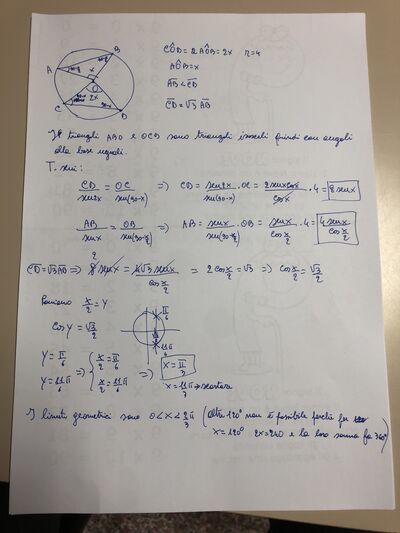 CÔD = 2 AÔB = 2x r=4
AÔB = x
AB < CD
CD = √3 AB
A
B
C
D
O
x
2x
I triangli ABO e OCD sono triangli isosceli quindi con angoli
alla base uguali.
T. seni:
CD/sen2x = OC/sen(90-x) => CD = sen2x/sen(90-x) · OC = 2senxcosx/cosx · 4 = 8 senx
AB/senx = OB/sen(90-x/2) => AB = senx/sen(90-x/2) · OB = senx/cos x/2 · 4 = 4senx/cos x/2
CD = √3 AB => 8 senx = 4√3 senx/cos x/2 = 2cos x/2 = √3 => cos x/2 = √3/2
Poniamo x/2 = Y
Cos Y = √3/2
π/6
11π/6
Y = π/6 => x/2 = π/6 => x = π/3
Y = 11π/6 x/2 = 11π/6 x = 11π/7 → scartare
I limiti geometrici sono 0 < x < 2/3 π (Oltre 120° non è possibile perché per
x = 120° 2x = 240 e la loro somma fa 360°)